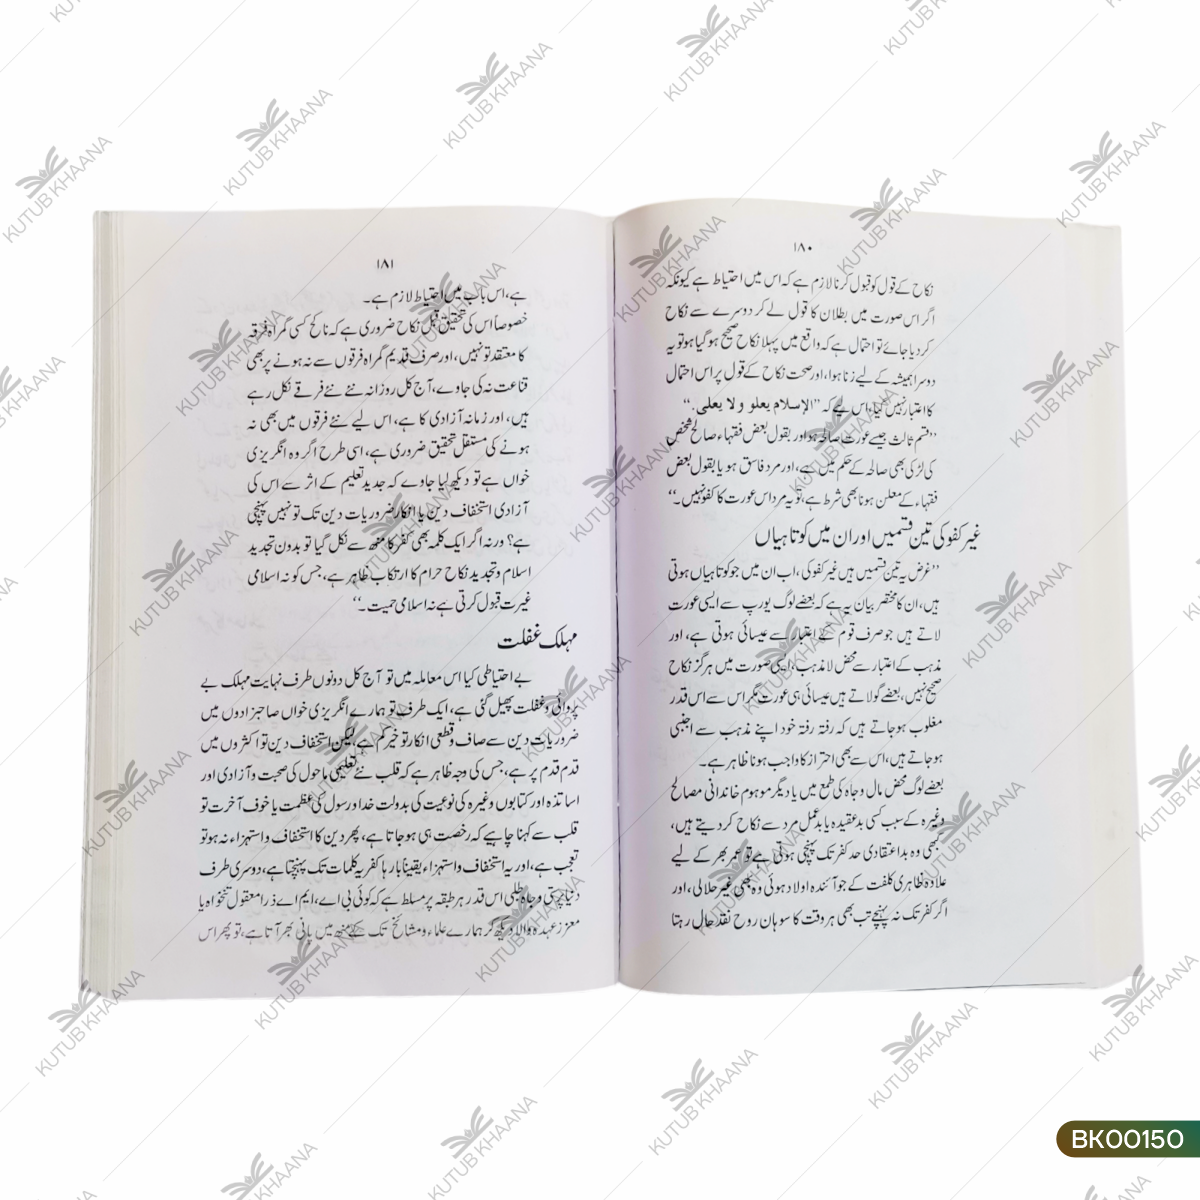 ۱۸۰
نکاح کے قول کو قبول کرنا لازم ہے کہ اس میں احتیاط ہے کیونکہ
اگر اس صورت میں بطلان کا قول لے کر دوسرے سے نکاح
کر دیا جائے تو احتمال ہے کہ واقع میں پہلا نکاح صحیح ہو گیا ہو تو یہ
دوسرا ہمیشہ کے لیے زنا ہوا، اور صحت نکاح کے قول پر اس احتمال
کا اعتبار نہیں کیا، اس لیے کہ ”الإسلام یعلو ولا یعلی.“
”قسم ثالث جیسے عورت صالحہ ہو اور بقول بعض فقہاء صالح شخص
کی لڑکی بھی صالحہ کے حکم میں ہے، اور مرد فاسق ہو یا بقول بعض
فقہاء کے معلن ہونا بھی شرط ہے، تو یہ مرد اس عورت کا کفو نہیں۔“
غیر کفو کی تین قسمیں اور ان میں کوتاہیاں
”غرض یہ تین قسمیں ہیں غیر کفو کی، اب ان میں جو کوتاہیاں ہوتی
ہیں، ان کا مختصر بیان یہ ہے کہ بعضے لوگ یورپ سے ایسی عورت
لاتے ہیں جو صرف قوم کے اعتبار سے عیسائی ہوتی ہے، اور
مذہب کے اعتبار سے محض لامذہب، ایسی صورت میں ہرگز نکاح
صحیح نہیں، بعضے گو لاتے ہیں عیسائی ہی عورت مگر اس سے اس قدر
مغلوب ہو جاتے ہیں کہ رفتہ رفتہ خود اپنے مذہب سے اجنبی
ہو جاتے ہیں، اس سے بھی احتراز کا واجب ہونا ظاہر ہے۔
بعضے لوگ محض مال و جاہ کی طمع میں یا دیگر موہوم خاندانی مصالح
وغیرہ کے سبب کسی بدعقیدہ یا بدعمل مرد سے نکاح کر دیتے ہیں،
بھی وہ بداعتقادی حد کفر تک پہنچی ہوتی ہے تو عمر بھر کے لیے
علاوہ ظاہری کلفت کے جو آئندہ اولاد ہوئی وہ بھی غیر حلالی، اور
اگر کفر تک نہ پہنچے تب بھی ہر وقت کا سوہان روح نقد حال رہتا
۱۸۱
ہے، اس باب میں احتیاط لازم ہے۔
خصوصاً اس کی تحقیق قبل نکاح ضروری ہے کہ ناکح کسی گمراہ فرقہ
کا معتقد تو نہیں، اور صرف قدیم گمراہ فرقوں سے نہ ہونے پر بھی
قناعت نہ کی جاوے، آج کل روزانہ نئے نئے فرقے نکل رہے
ہیں، اور زمانہ آزادی کا ہے، اس لیے نئے فرقوں میں بھی نہ
ہونے کی مستقل تحقیق ضروری ہے، اسی طرح اگر وہ انگریزی
خواں ہے تو دیکھ لیا جاوے کہ جدید تعلیم کے اثر سے اس کی
آزادی استخفاف دین یا انکار ضروریات دین تک تو نہیں پہنچی
ہے؟ ورنہ اگر ایک کلمہ بھی کفر کا منھ سے نکل گیا تو بدون تجدید
اسلام و تجدید نکاح حرام کا ارتکاب ظاہر ہے، جس کو نہ اسلامی
غیرت قبول کرتی ہے نہ اسلامی حمیت۔“
مہلک غفلت
بے احتیاطی کیا اس معاملہ میں تو آج کل دونوں طرف نہایت مہلک بے
پروائی و غفلت پھیل گئی ہے، ایک طرف تو ہمارے انگریزی خواں صاحبزادوں میں
ضروریات دین سے صاف و قطعی انکار تو خیر کم ہے، لیکن استخفاف دین تو اکثروں میں
قدم قدم پر ہے، جس کی وجہ ظاہر ہے کہ قلب نئے تعلیمی ماحول کی صحبت و آزادی اور
اساتذہ اور کتابوں وغیرہ کی نوعیت کی بدولت خدا و رسول کی عظمت یا خوف آخرت تو
قلب سے کہنا چاہیے کہ رخصت ہی ہو جاتا ہے، پھر دین کا استخفاف و استہزاء نہ ہو تو
تعجب ہے، اور یہ استخفاف و استہزاء یقیناً بارہا کفریہ کلمات تک پہنچتا ہے، دوسری طرف
دنیا پرستی و جاہ طلبی اس قدر ہر طبقہ پر مسلط ہے کہ کوئی بی اے، ایم اے ذرا معقول تنخواہ یا
معزز عہدہ والا دیکھ کر ہمارے علماء و مشائخ تک کے منھ میں پانی بھر آتا ہے، تو پھر اس
KUTUB KHAANA
BK00150